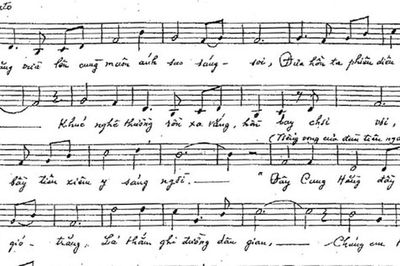 ato
ăng vừa lên cùng muôn ánh sao sáng - soi, Đưa hồn ta phiêu diêu
Khúc nghê thường xa vắng, hồn bay chơi vơi,
(Tiếng vọng của đàn tiên nga
bầy tiên xiêm y sáng ngời. "Đây Cung Hằng đây
gió - trăng. Lá thắm ghi đường dân gian, Chúng em